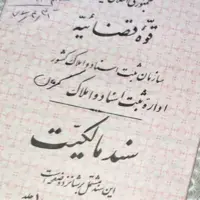 جمهوری اسلامی
قوّه قضائیه
سازمان ثبت اسناد و املاک کشور
اداره ثبت اسناد و املاک
سند مالکیّت
این سند مشتمل بر شانزده صفحه است